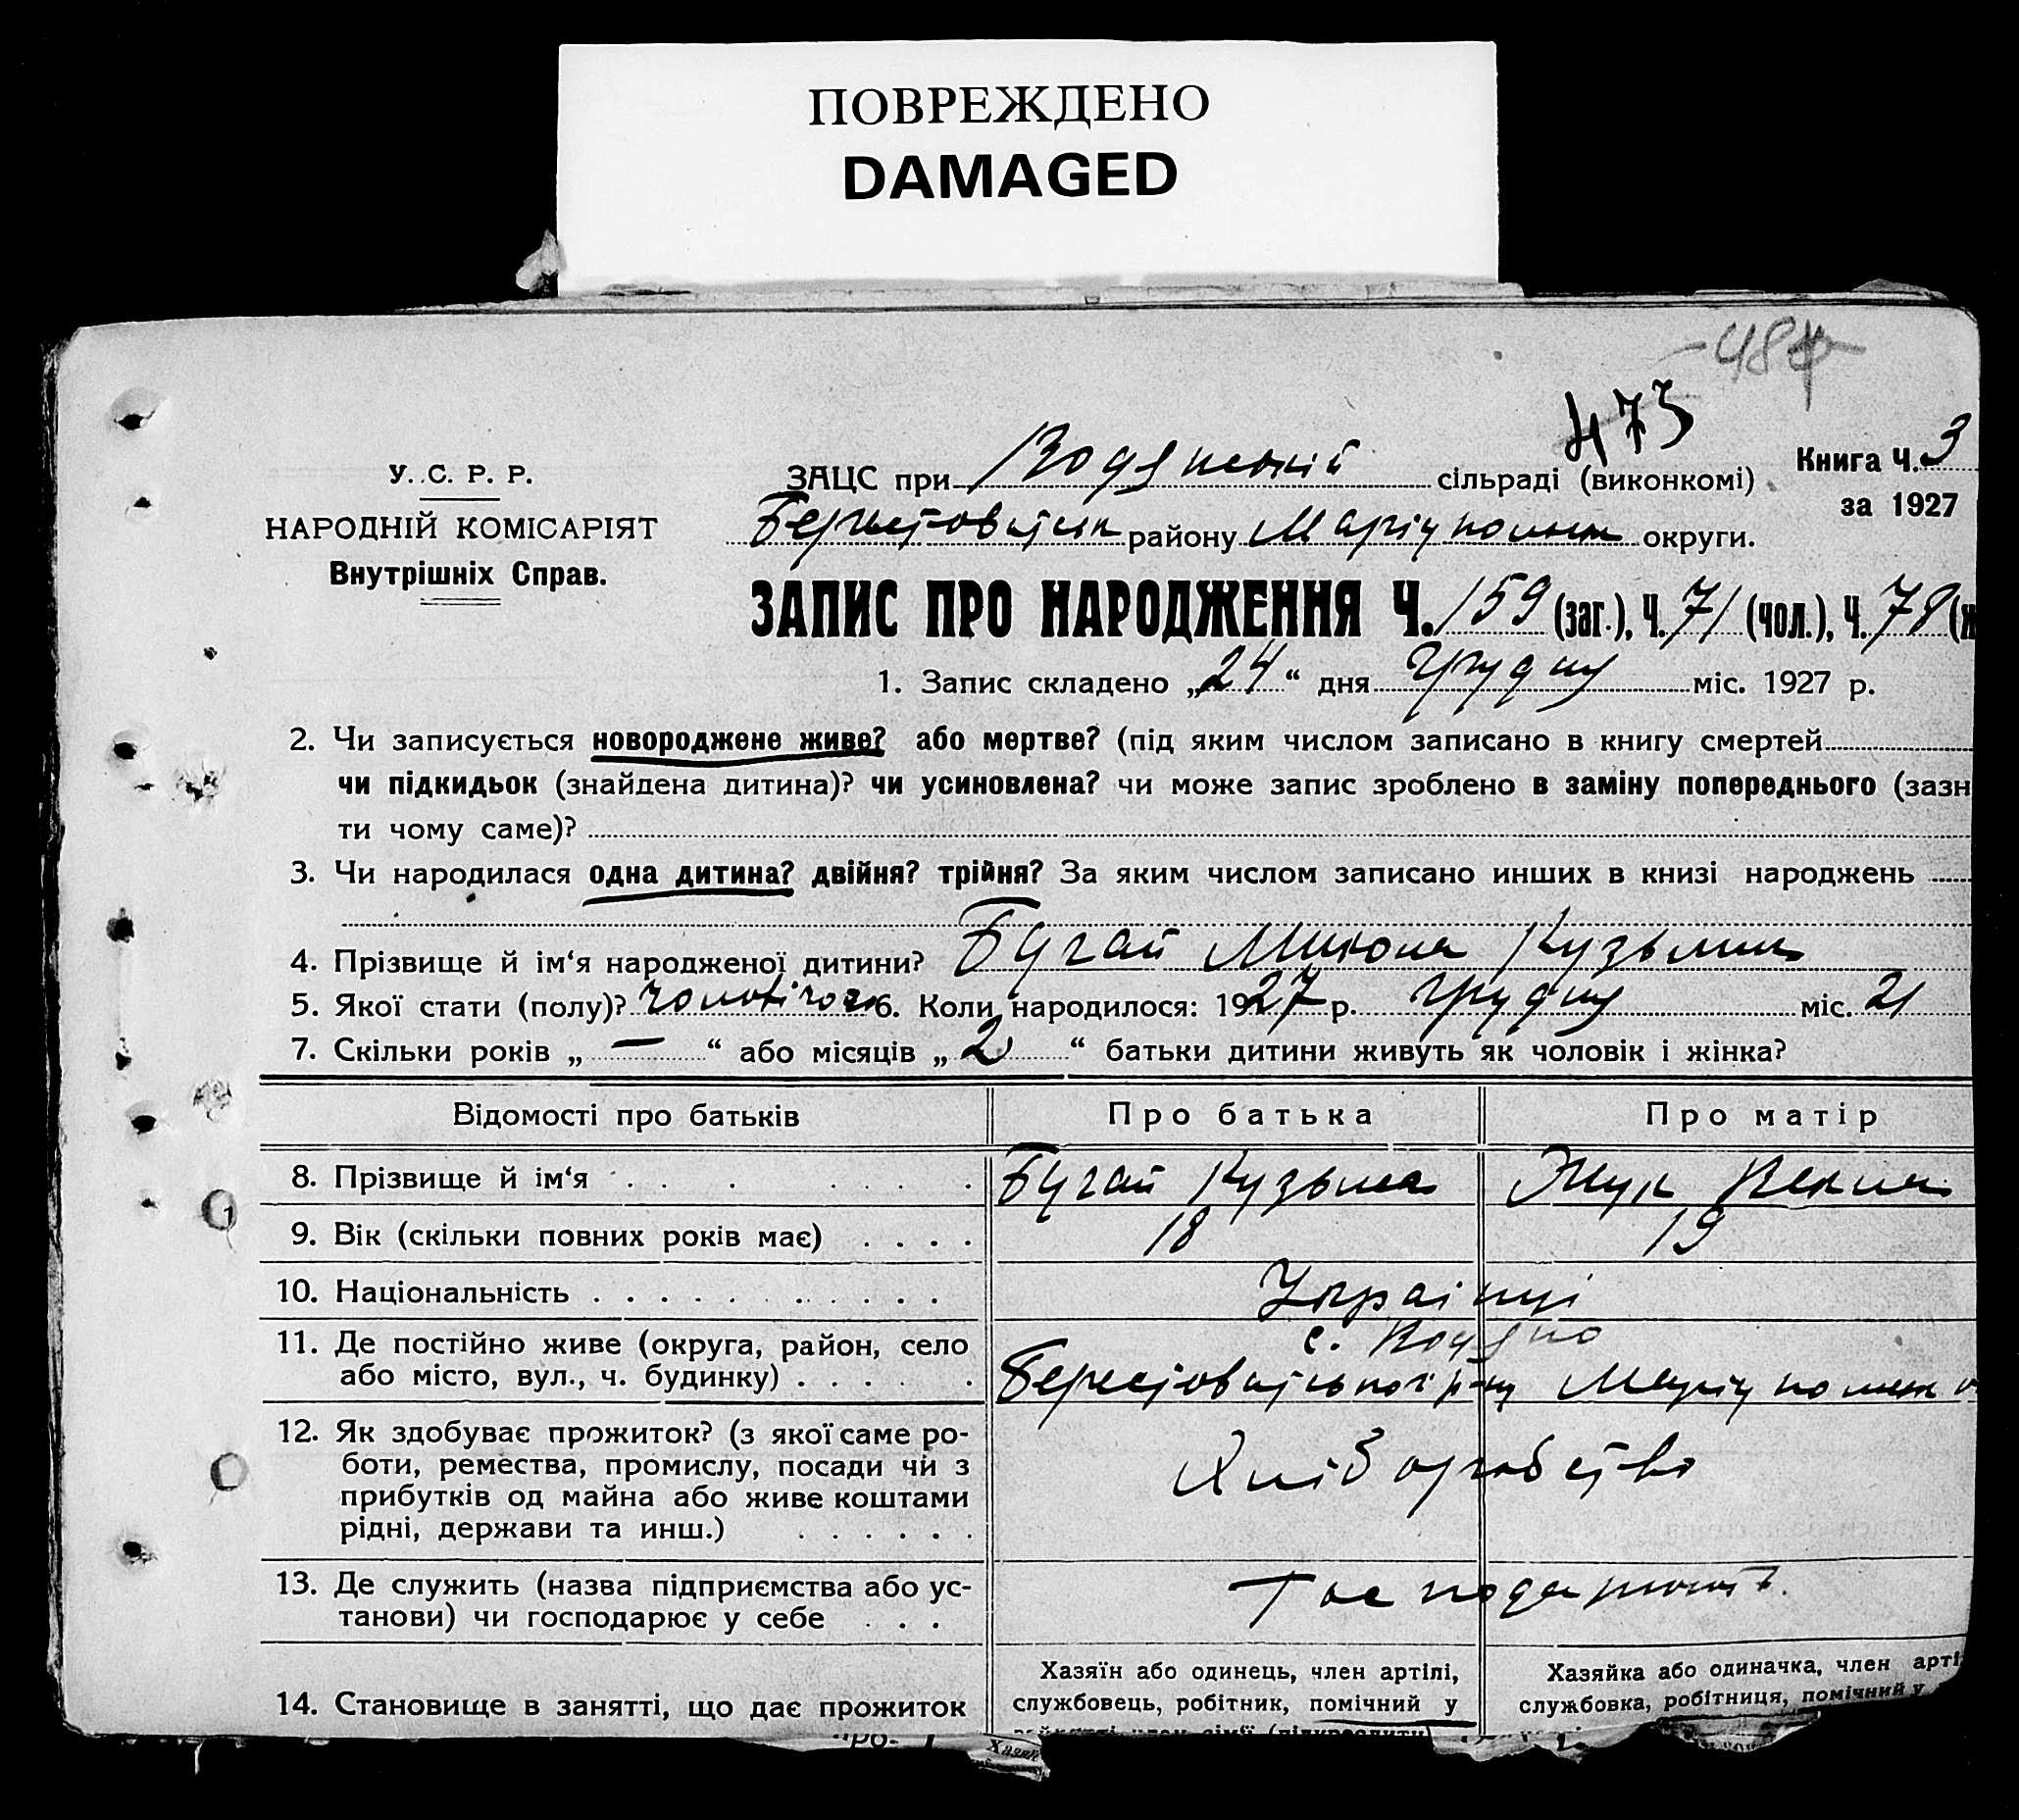 ПОВРЕЖДЕНО
DAMAGED
473
У. С. Р. Р.
НАРОДНІЙ КОМІСАРІЯТ
Внутрішніх Справ.
ЗАЦС при Водянській сільраді (виконкомі)
Книга Ч. 3
за 1927
району округи.
ЗАПИС ПРО НАРОДЖЕННЯ Ч. 159 (заг.), Ч. 71 (чол.), Ч. 78 (ж
1. Запис складено „24“ дня грудня міс. 1927 р.
2. Чи записується новороджене живе? або мертве? (під яким числом записано в книгу смертей
чи підкидьок (знайдена дитина)? чи усиновлена? чи може запис зроблено в заміну попереднього (зазн
ти чому саме)?
3. Чи народилася одна дитина? двійня? трійня? За яким числом записано инших в книзі народжень
4. Прізвище й ім‘я народженої дитини? Бугай Микола Кузьмич
5. Якої стати (полу)? чоловічого 6. Коли народилося: 1927 р. грудня міс. 21
7. Скільки років „ — “ або місяців „ 2 “ батьки дитини живуть як чоловік і жінка?
Відомості про батьків Про батька Про матір
8. Прізвище й ім‘я . . . . . . . Бугай Кузьма Жук
9. Вік (скільки повних років має) . . . . 18 19
10. Національність . . . . . . . . . . . Українці
11. Де постійно живе (округа, район, село с. Водяно
або місто, вул., ч. будинку) . . . . . .
12. Як здобуває прожиток? (з якої саме ро-
боти, ремества, промислу, посади чи з Хліборобство
прибутків од майна або живе коштами
рідні, держави та инш.) . . . . . .
13. Де служить (назва підприємства або ус-
танови) чи господарює у себе . . .
Хазяїн або одинець, член артілі, Хазяйка або одиначка, член арті
14. Становище в занятті, що дає прожиток службовець, робітник, помічний у службовка, робітниця, помічний у